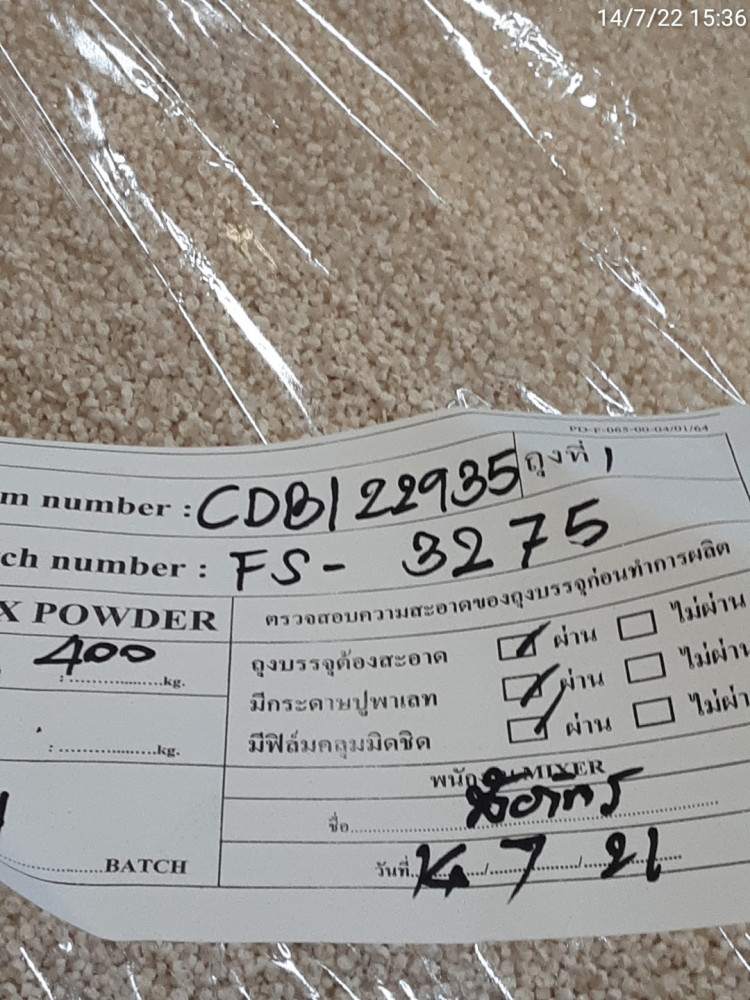 14/7/22 15:36
PD-F-065-00-04/01/64
m number : CDB122935 ถุงที่ 1
ch number : FS- 3275
X POWDER
ตรวจสอบความสะอาดของถุงบรรจุก่อนทำการผลิต
400
:..................kg.
ถุงบรรจุต้องสะอาด ผ่าน ไม่ผ่าน
มีกระดาษปูพาเลท ผ่าน ไม่ผ่าน
:..................kg.
มีฟิล์มคลุมมิดชิด ผ่าน ไม่ผ่า
MIXER
ชื่อ
BATCH
วันที่ 14 / 7 / 21